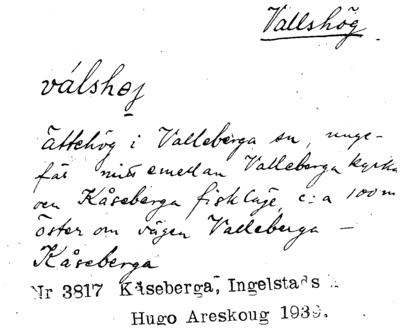 Vallshög
válshøj
Ättehög i Valleberga sn, unge-
fär mitt emellan Valleberga kyrka
och Kåseberga fiskläge, c:a 100 m
öster om vägen Valleberga –
Kåseberga
Nr 3817 Kåseberga, Ingelstads
Hugo Areskoug 1939.